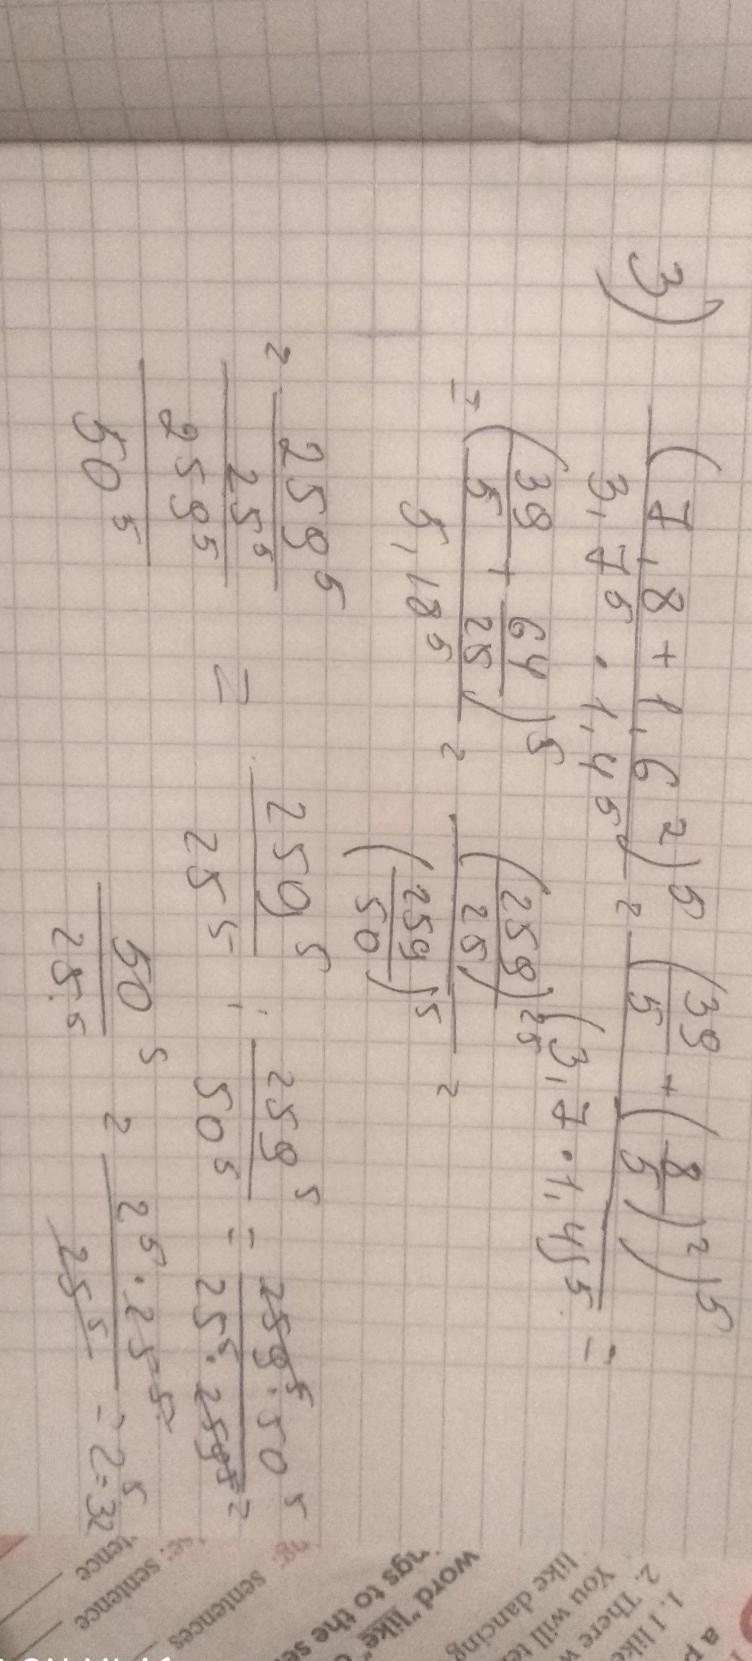 3) (7,8 + 1,6²)⁵ / 3,7⁵ · 1,4⁵ = (39/5 + (8/5)²)⁵ / (3,7 · 1,4)⁵ =
= (39/5 + 64/25)⁵ / 5,18⁵ = (259/25)⁵ / (259/50)⁵ =
= 259⁵/25⁵ / 259⁵/50⁵ = 259⁵/25⁵ : 259⁵/50⁵ = 259⁵ · 50⁵ / 25⁵ · 259⁵ =
50⁵/25⁵ = 2⁵ · 25⁵ / 25⁵ = 2⁵ = 32
a p
1. I like
2. There w
You will te
like dancing
word "like"
ngs to the se
sentences
sentence
tence